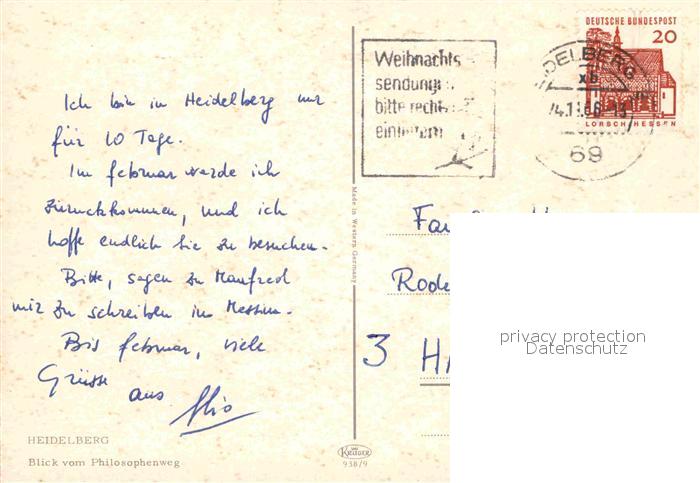 Ich bin in Heidelberg nur
für 10 Tage.
Im februar werde ich
zurückkommen, und ich
hoffe endlich Sie zu besuchen.
Bitte, sagen zu Manfred
mir zu schreiben in Messina.
Bis februar, viele
Grüsse aus
HEIDELBERG
Blick vom Philosophenweg
Made in Western Germany
KRÜGER
938/9
Weihnachts
sendung
bitte recht
einliefern
HEIDELBERG
xb
69
DEUTSCHE BUNDESPOST
20
LORSCH/HESSEN
Fa
Rode
3 H
privacy protection
Datenschutz